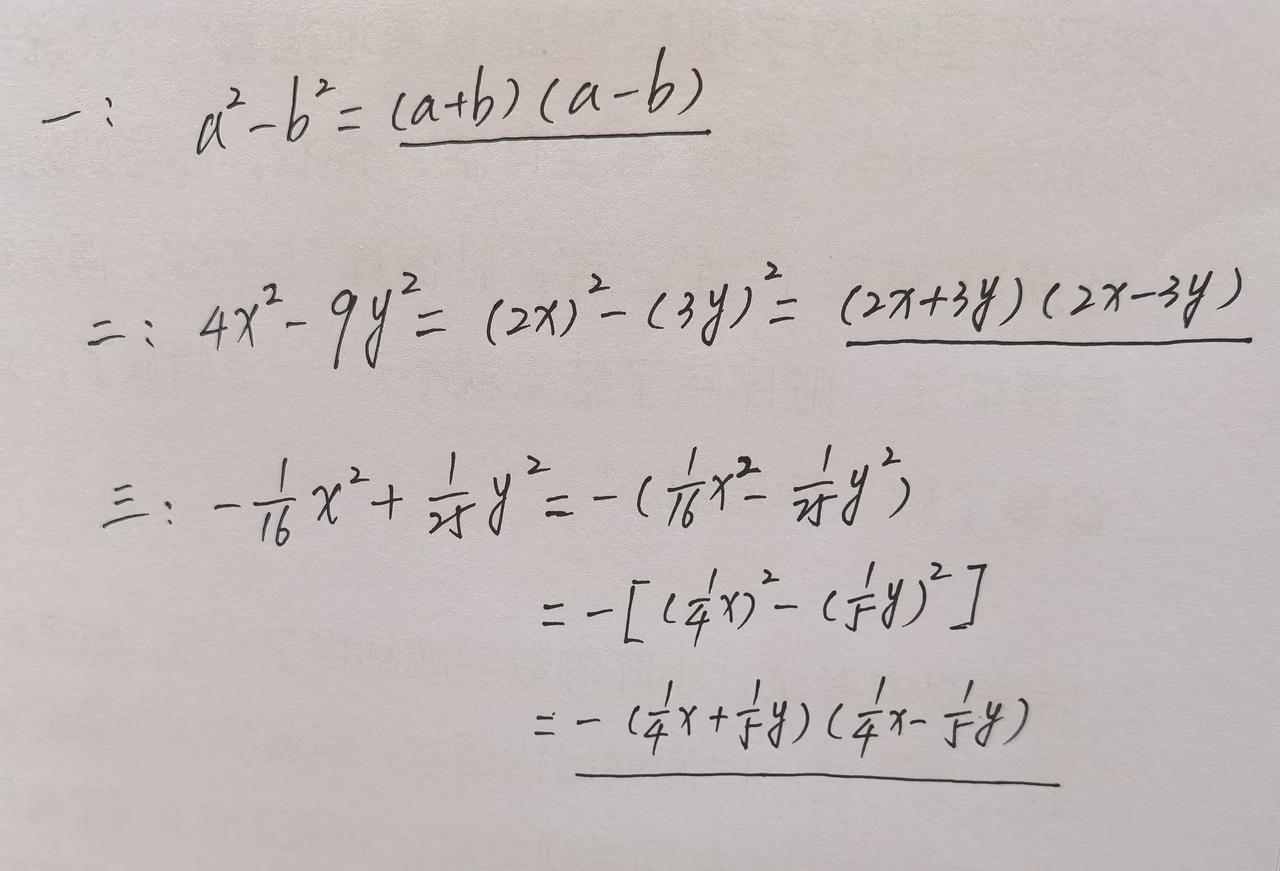 一: a²-b²=(a+b)(a-b)
二: 4x²-9y²=(2x)²-(3y)²=(2x+3y)(2x-3y)
三: -1/16x²+1/25y²=-(1/16x²-1/25y²)
=-[(1/4x)²-(1/5y)²]
=-(1/4x+1/5y)(1/4x-1/5y)